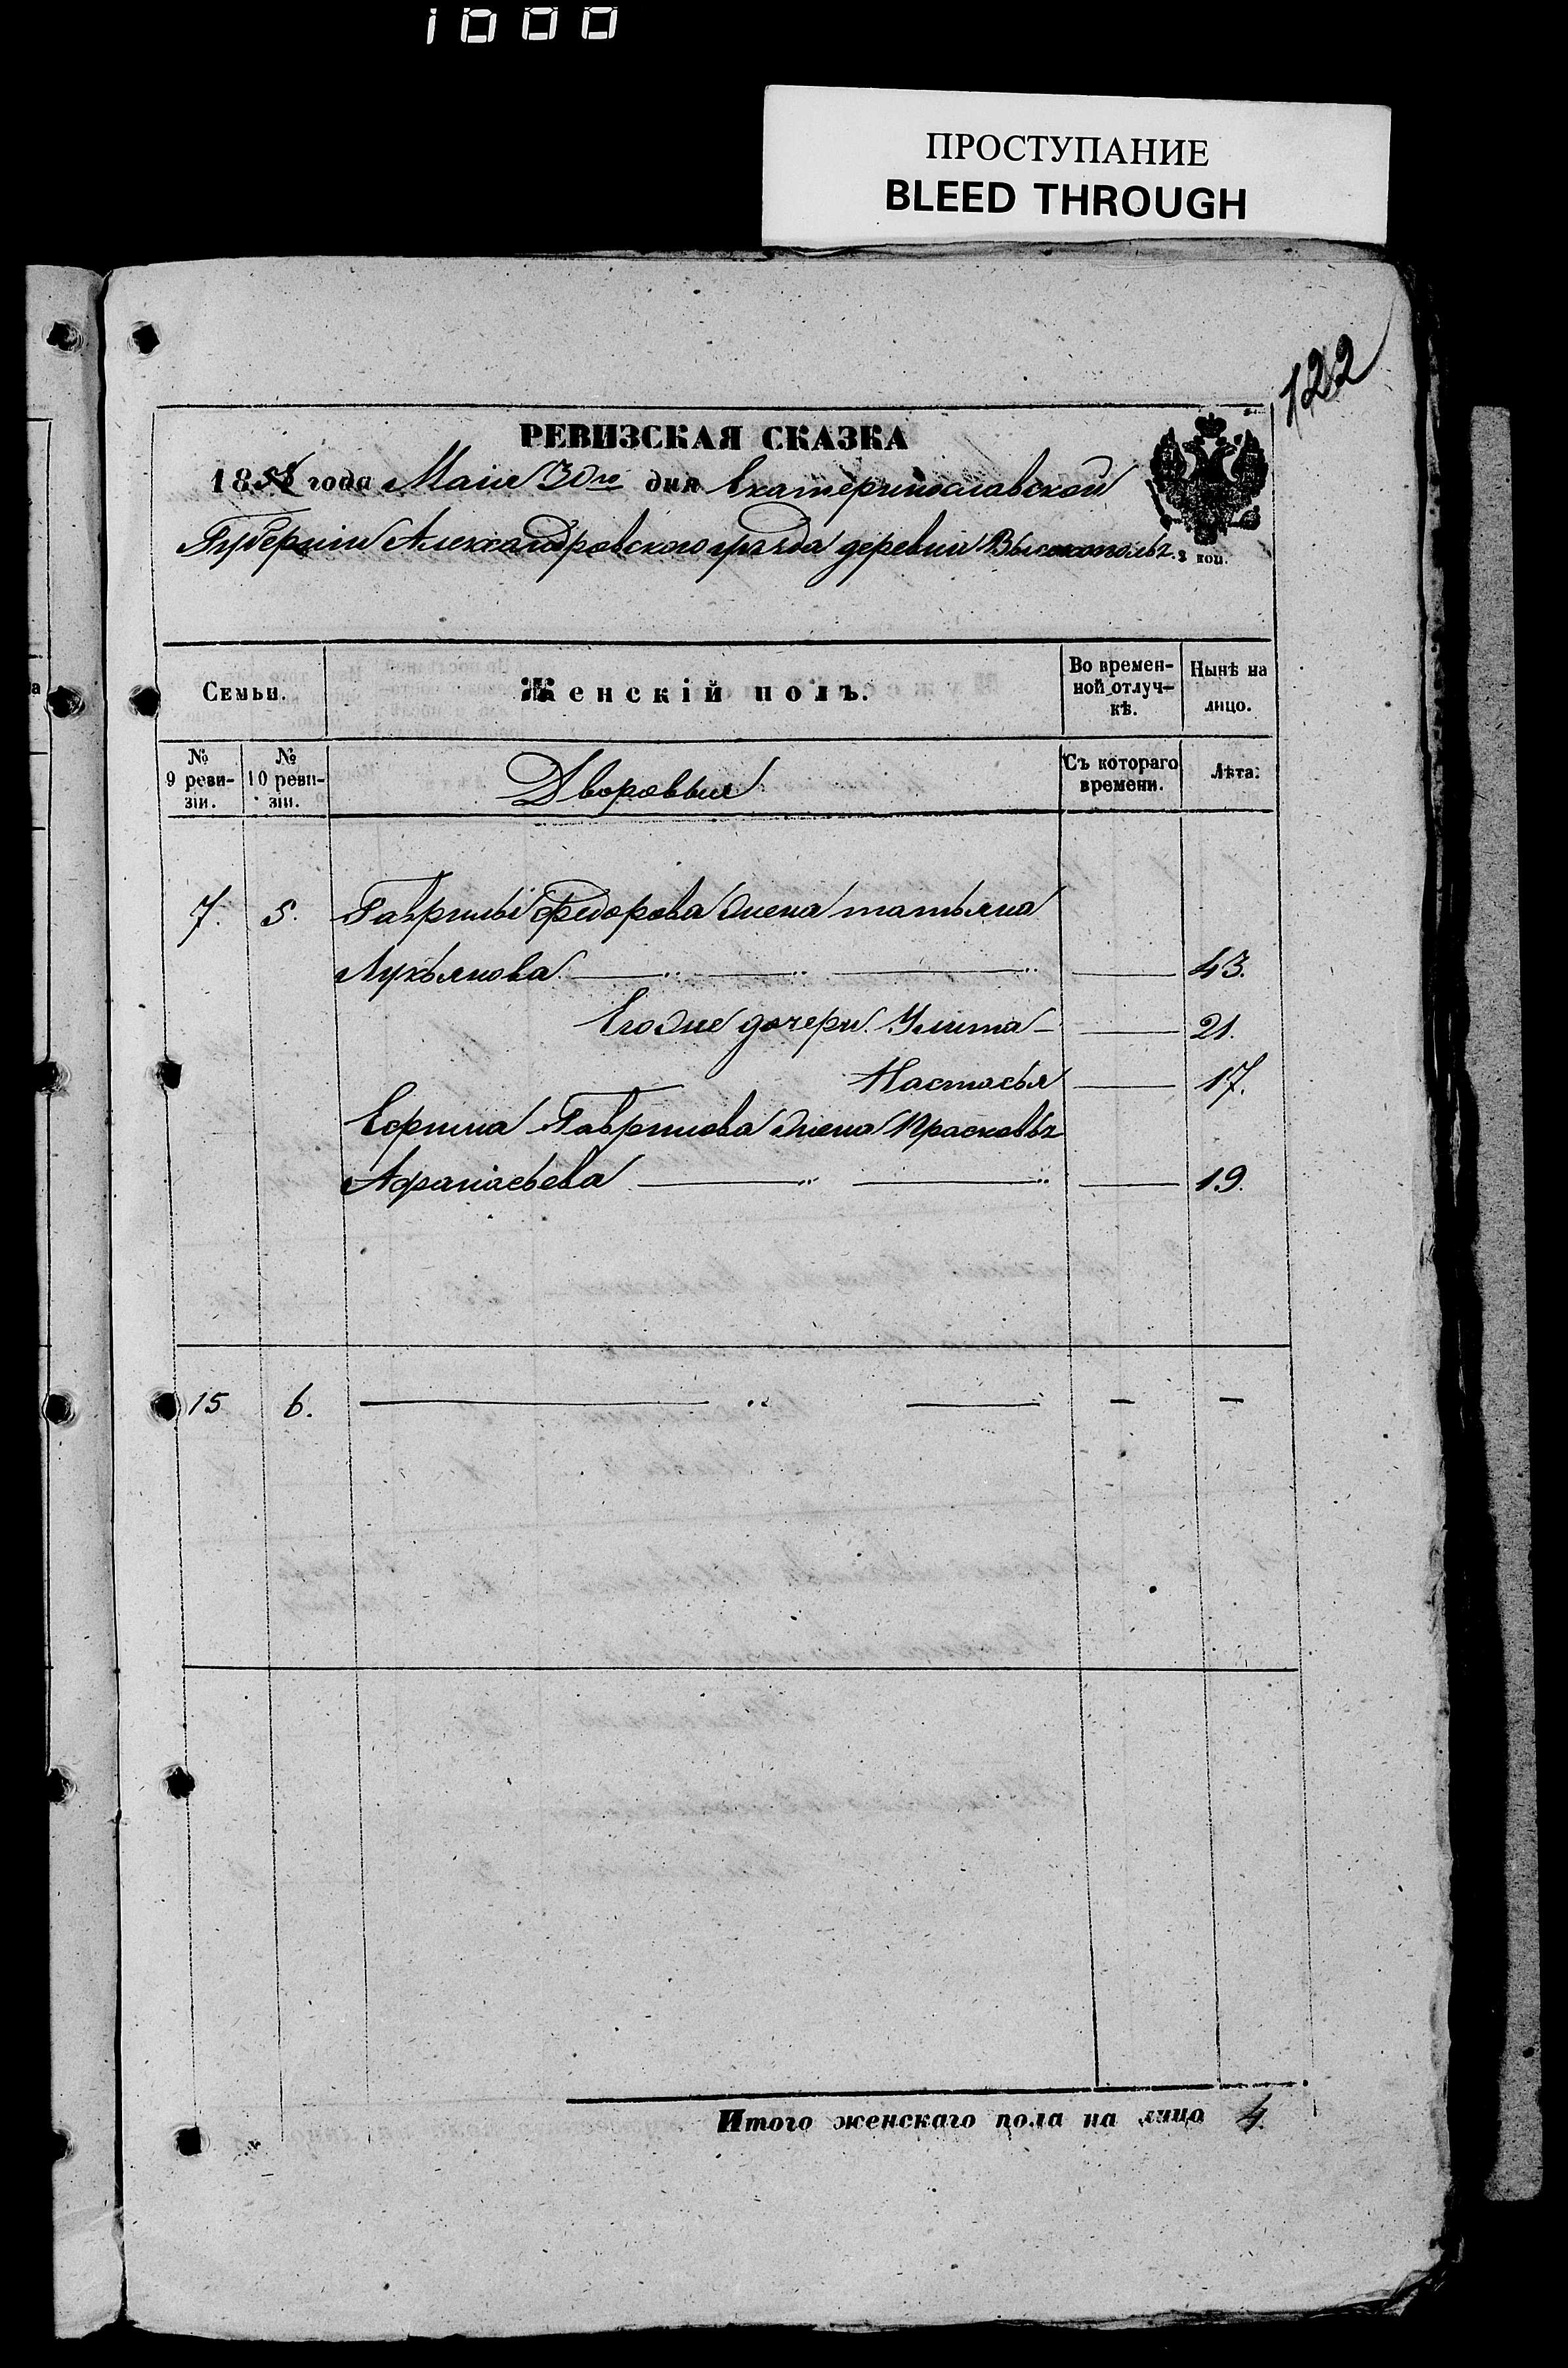 1000
ПРОСТУПАНИЕ
BLEED THROUGH
122
РЕВИЗСКАЯ СКАЗКА
1858 года Маія 30го дня Екатеринославской
Губерніи Александровского уѣзда деревни Высокополь
3 коп.
Семьи.
Женскій полъ.
Во времен-
ной отлуч-
кѣ.
Нынѣ на
лицо.
№
9 реви-
зіи.
№
10 реви-
зіи.
Дворовыя
Съ котораго
времени.
Лѣта.
7. 5. Гаврилы Федорова жена татьяна
Лукьянова 43.
Его же дочери Улита 21.
Настасья 17.
Ефрима Гаврилова жена Прасковья
Афанасьева 19.
15 6. — — — —
Итого женскаго пола на лицо 4.